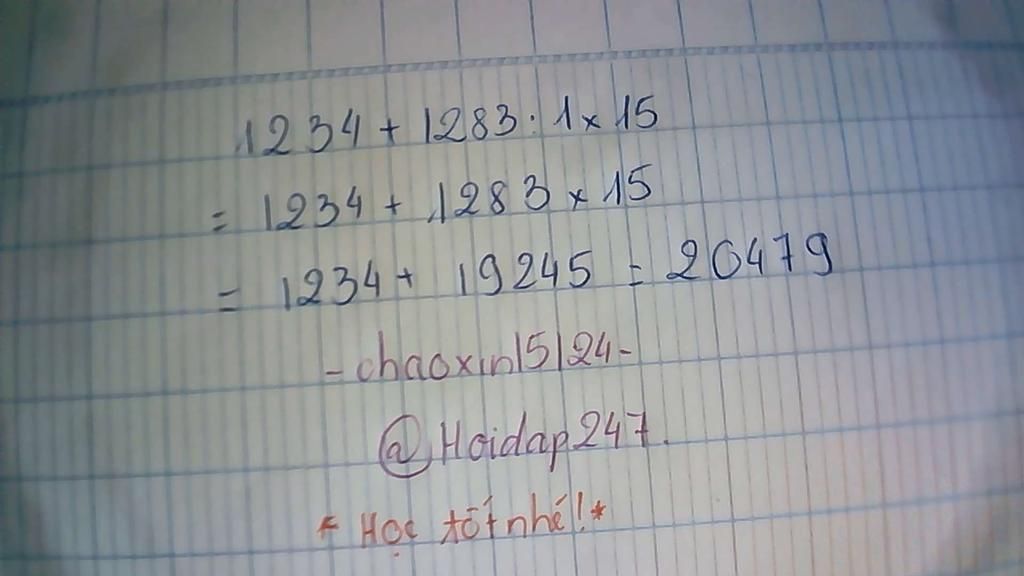 1234 + 1283 : 1 x 15
= 1234 + 1283 x 15
= 1234 + 19245 = 20479
- chaoxin15124-
@Hoidap247.
* Học tốt nhé! *